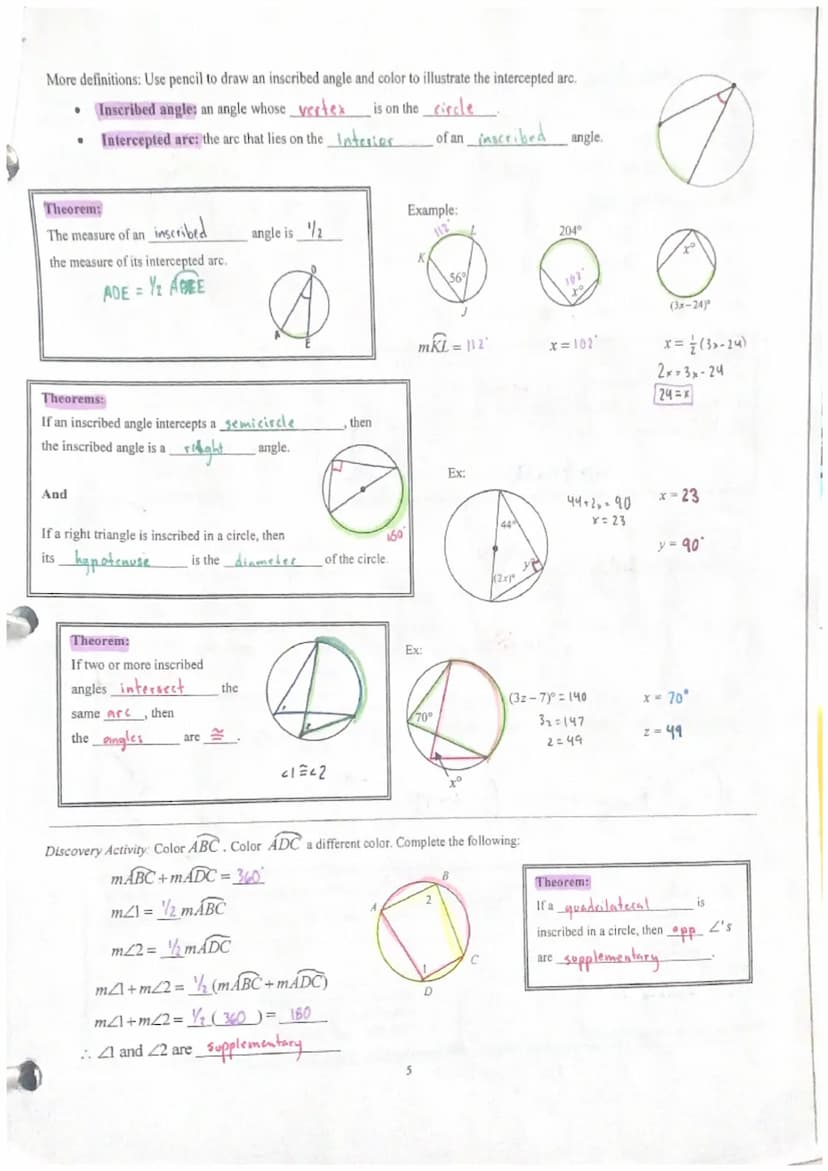 More definitions: Use pencil to draw an inscribed angle and color to illustrate the intercepted arc.
• Inscribed angle: an angle whose vertex is on the circle.
• Intercepted arc: the arc that lies on the Interior of an inscribed angle.
Theorem:
The measure of an inscribed angle is 1/2
the measure of its intercepted arc.
ADE = 1/2 AE
D
A
E
Example:
112°
L
K
56°
J
mKL = 112°
204°
102°
x°
x = 102°
x°
(3x-24)°
x = 1/2 (3x-24)
2x = 3x - 24
24 = x
Theorems:
If an inscribed angle intercepts a semicircle, then
the inscribed angle is a right angle.
And
If a right triangle is inscribed in a circle, then
its hypotenuse is the diameter of the circle.
180°
Ex:
44°
y°
(2x)°
44+2x = 90
x = 23
x = 23
y = 90°
Theorem:
If two or more inscribed
angles intersect the
same arc, then
the angles are ≅.
<1 ≅ <2
Ex:
70°
x°
(3z-7)° = 140
3z = 147
z = 49
x = 70°
z = 49
Discovery Activity: Color ABC. Color ADC a different color. Complete the following:
mABC + mADC = 360°
m∠1 = 1/2 mABC
m∠2 = 1/2 mADC
m∠1 + m∠2 = 1/2 (mABC + mADC)
m∠1 + m∠2 = 1/2 (360) = 180
∴ ∠1 and ∠2 are supplementary
B
A
2
1
C
D
Theorem:
If a quadrilateral is
inscribed in a circle, then opp ∠'s
are supplementary.
5